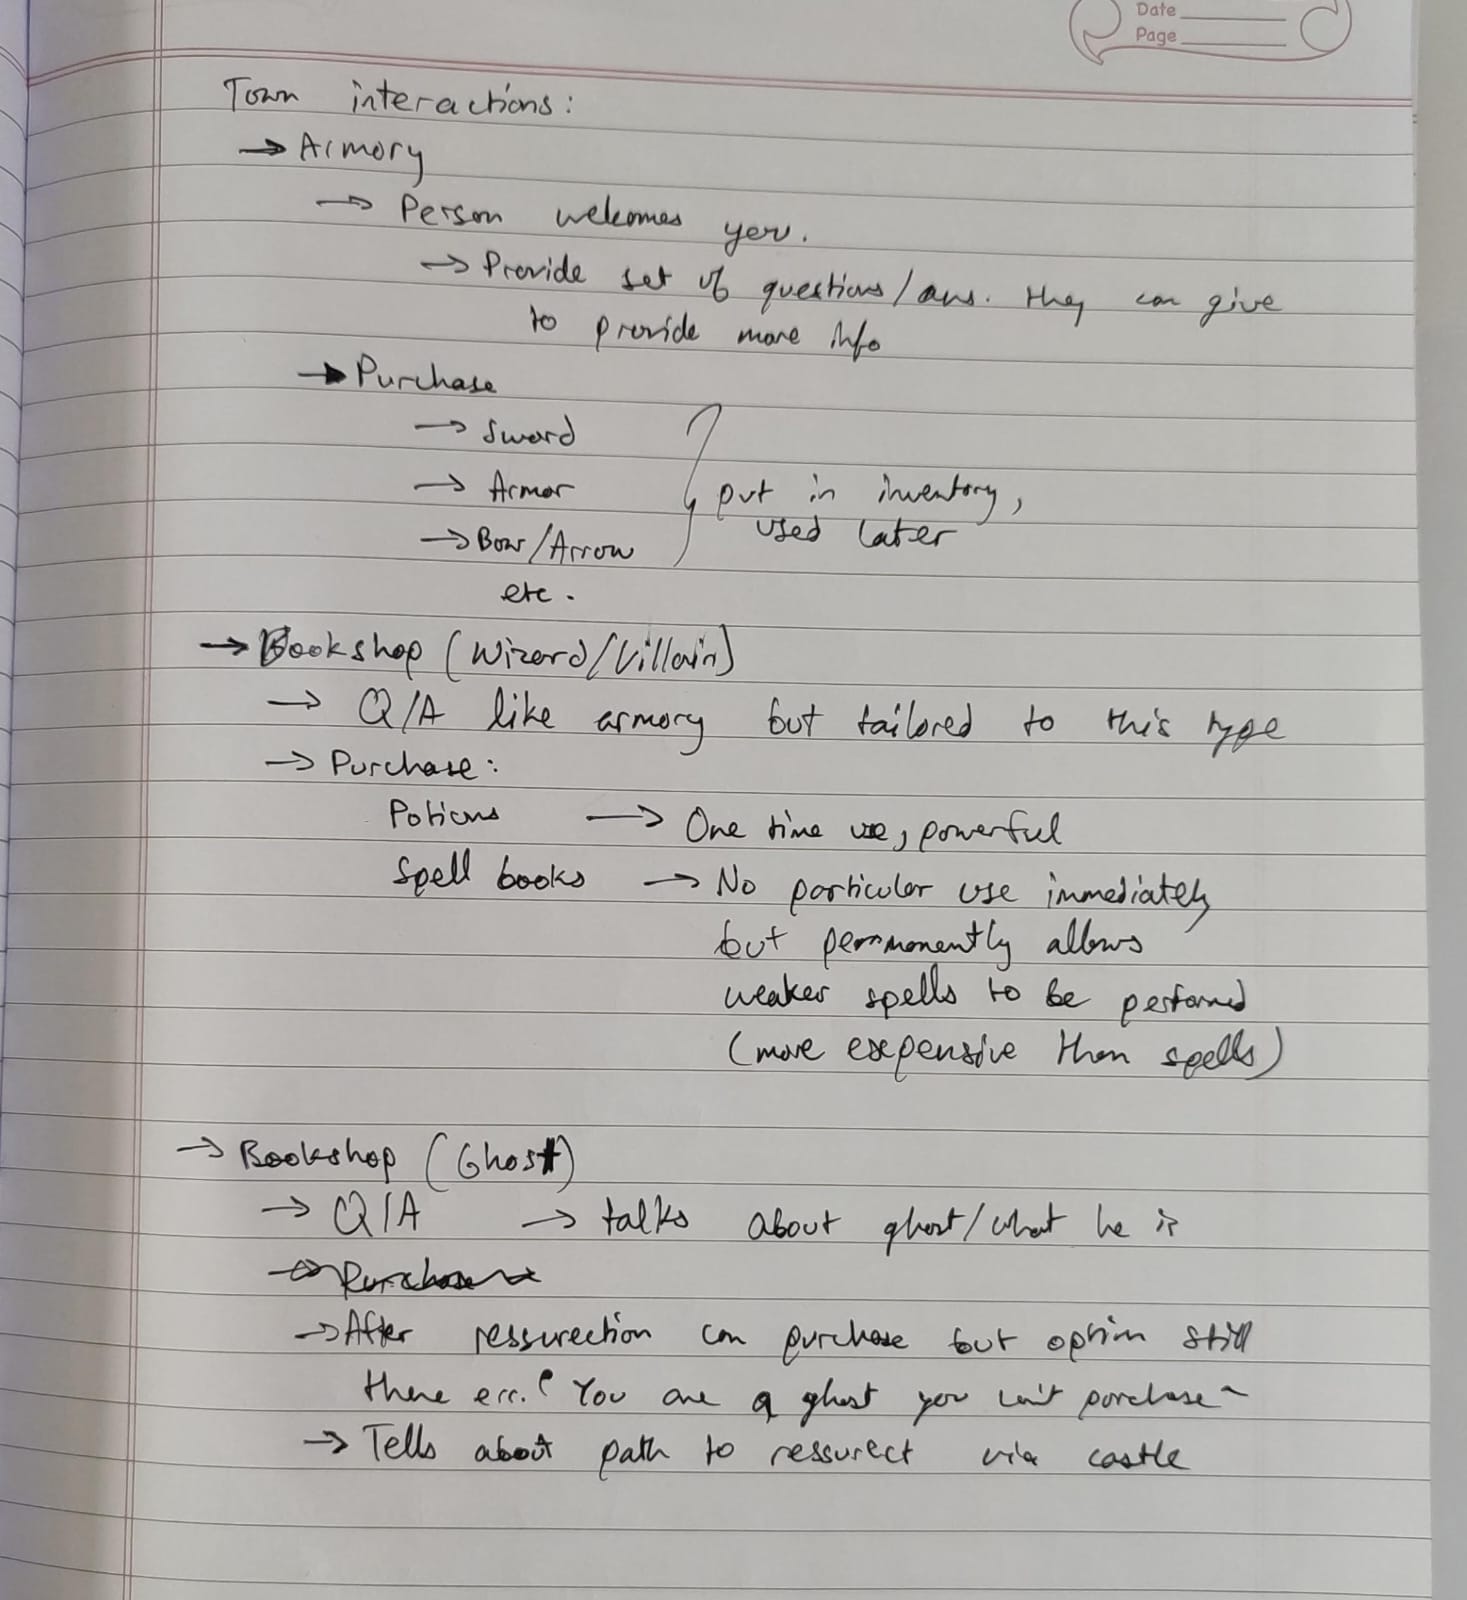 Date
Page
Town interactions:
→ Armory
→ Person welcomes you.
→ Provide set of questions/ans. they can give
to provide more info
→ Purchase
→ Sword
→ Armor
→ Bow/Arrow
etc.
put in inventory,
used later
→ Bookshop (Wizard/Villain)
→ Q/A like armory but tailored to this type
→ Purchase:
Potions → One time use, powerful
Spell books → No particular use immediately
but permmanently allows
weaker spells to be performed
(more expensive than spells)
→ Bookshop (Ghost)
→ Q/A → talks about ghost/what he is
→ Purchase
→ After ressurection can purchase but option still
there err. "You are a ghost you can't purchase"
→ Tells about path to ressurect via castle